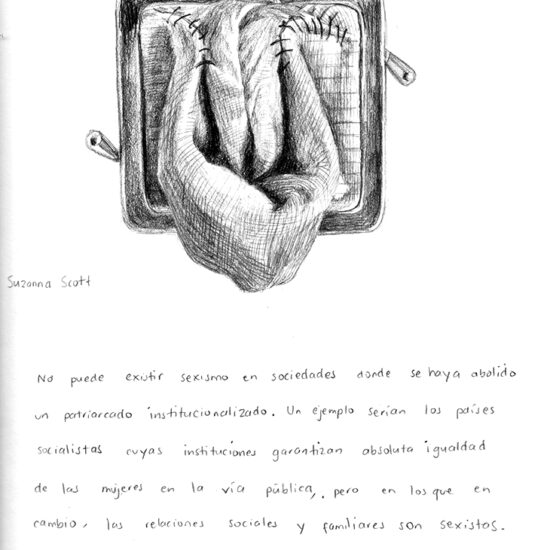 Suzanna Scott
No puede existir sexismo en sociedades donde se haya abolido
un patriarcado institucionalizado. Un ejemplo serían los países
socialistas cuyas instituciones garantizan absoluta igualdad
de las mujeres en la vía pública, pero en los que en
cambio, las relaciones sociales y familiares son sexistas.